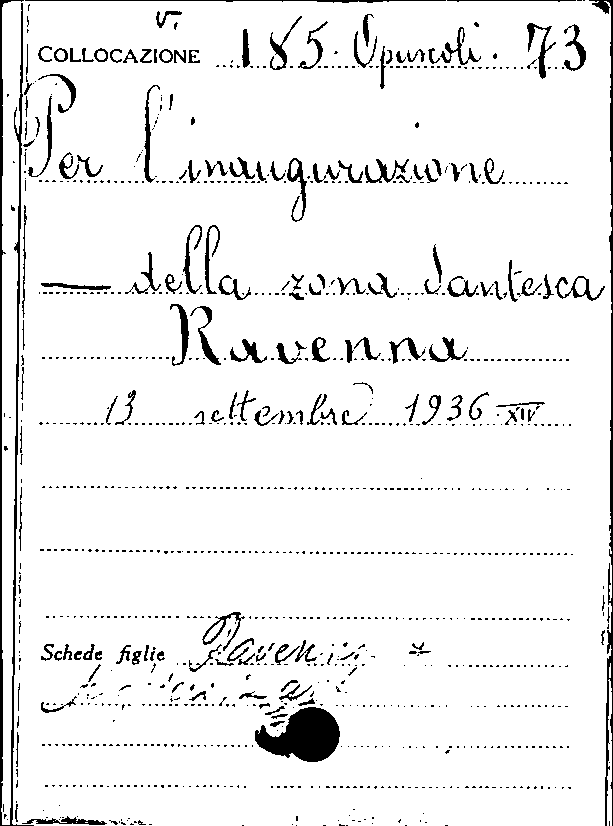 v.
COLLOCAZIONE 185. Opuscoli. 73
Per l'inaugurazione
— della zona dantesca
Ravenna
13 settembre 1936 XIV
Schede figlie Ravenna *